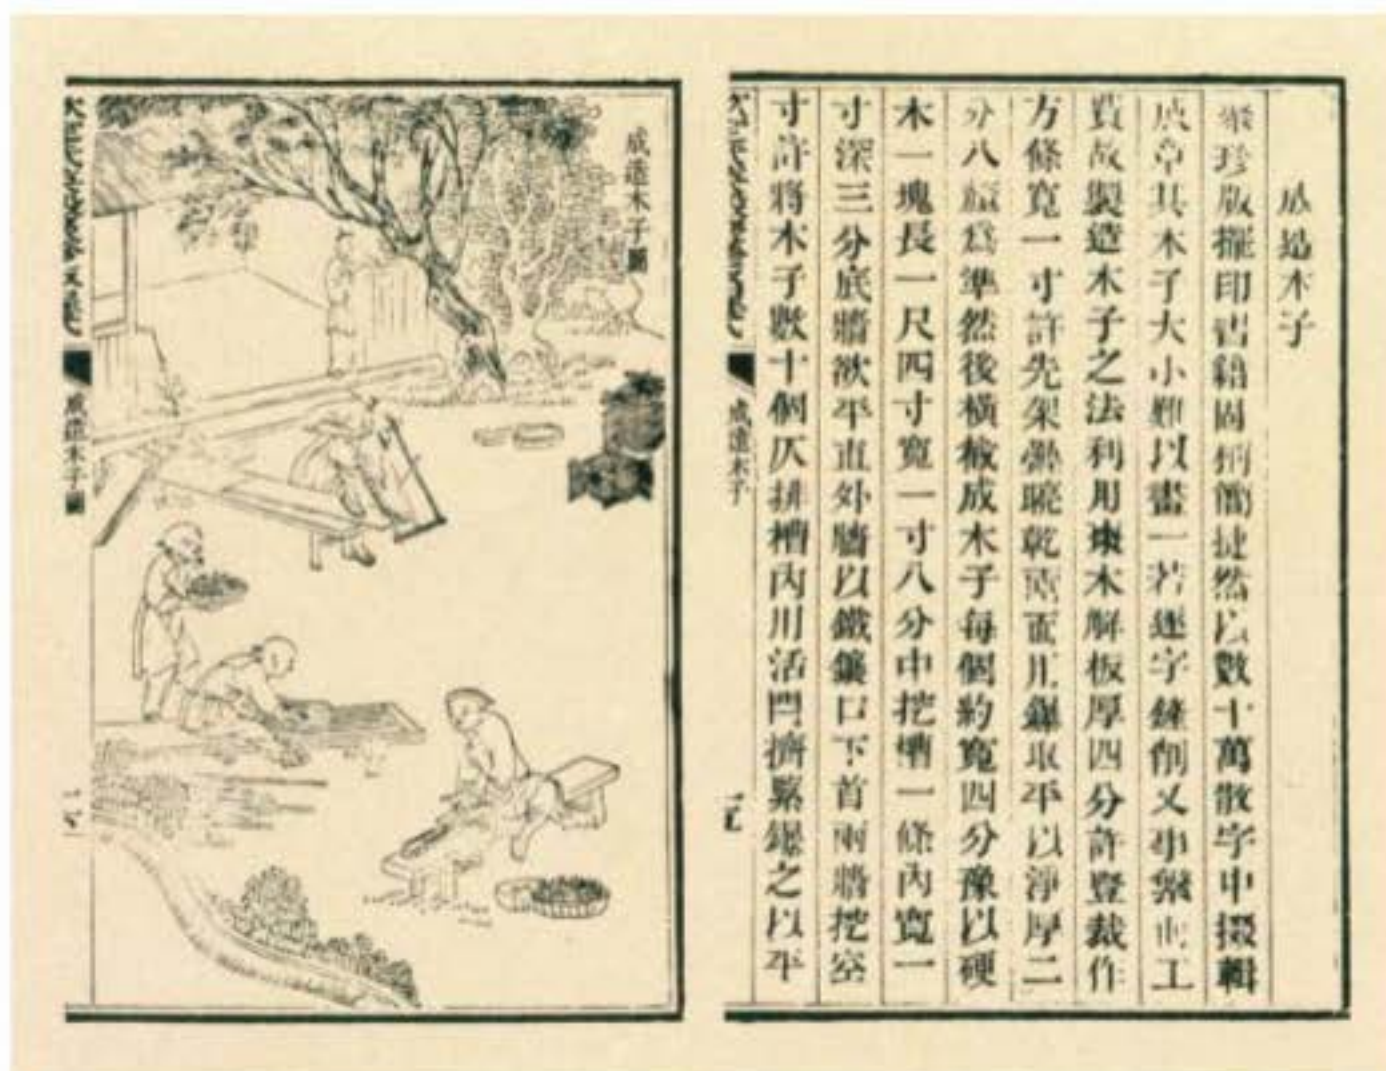 成造木子
聚珍版擺印書籍固簡捷然以數十萬散字中掇輯
成章其木子大小難以畫一若逐字鏟削又事繁而工
費故製造木子之法利用棗木解板厚四分許豎裁作
方條寬一寸許先架疊晾乾兩面用鑤取平以淨厚二
分八釐為準然後橫截成木子每個約寬四分豫以硬
木一塊長一尺四寸寬一寸八分中挖槽一條內寬一
寸深三分底牆欲平直外牆以鐵鑲口下首兩牆挖空
寸許將木子數十個仄排槽內用活閂擠緊鑤之以平
成造木子
成造木子圖
成造木子圖